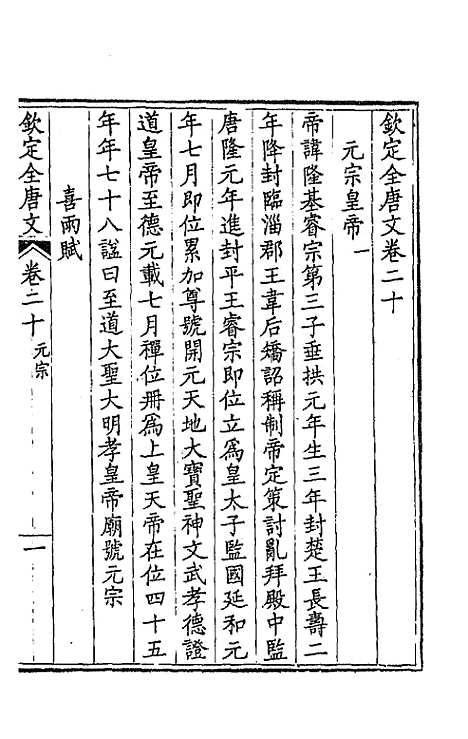 欽定全唐文卷二十
元宗皇帝一
帝諱隆基睿宗第三子垂拱元年生三年封楚王長壽二
年降封臨淄郡王韋后矯詔稱制帝定策討亂拜殿中監
唐隆元年進封平王睿宗即位立為皇太子監國延和元
年七月即位累加尊號開元天地大寶聖神文武孝德證
道皇帝至德元載七月禪位冊為上皇天帝在位四十五
年年七十八諡曰至道大聖大明孝皇帝廟號元宗
喜雨賦
欽定全唐文 卷二十 元宗 一